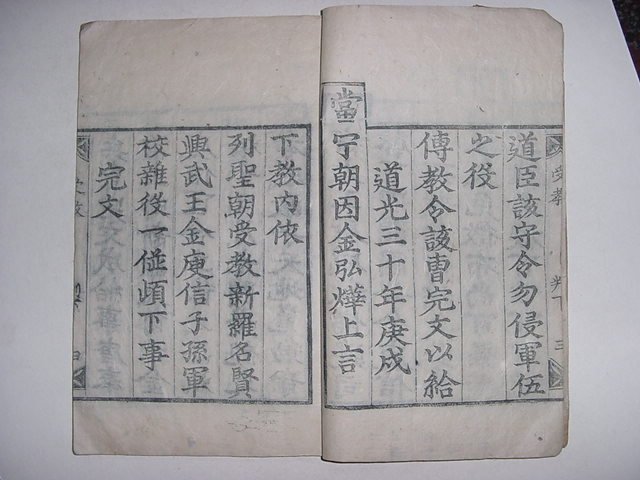 道臣該守令勿侵軍伍
之役
傳教令該曹完文以給
道光三十年庚戌
當宁朝因金弘燁上言
下教內依
列聖朝受教新羅名賢
興武王金庾信子孫軍
校雜役一並頉下事
完文
受教
三
四